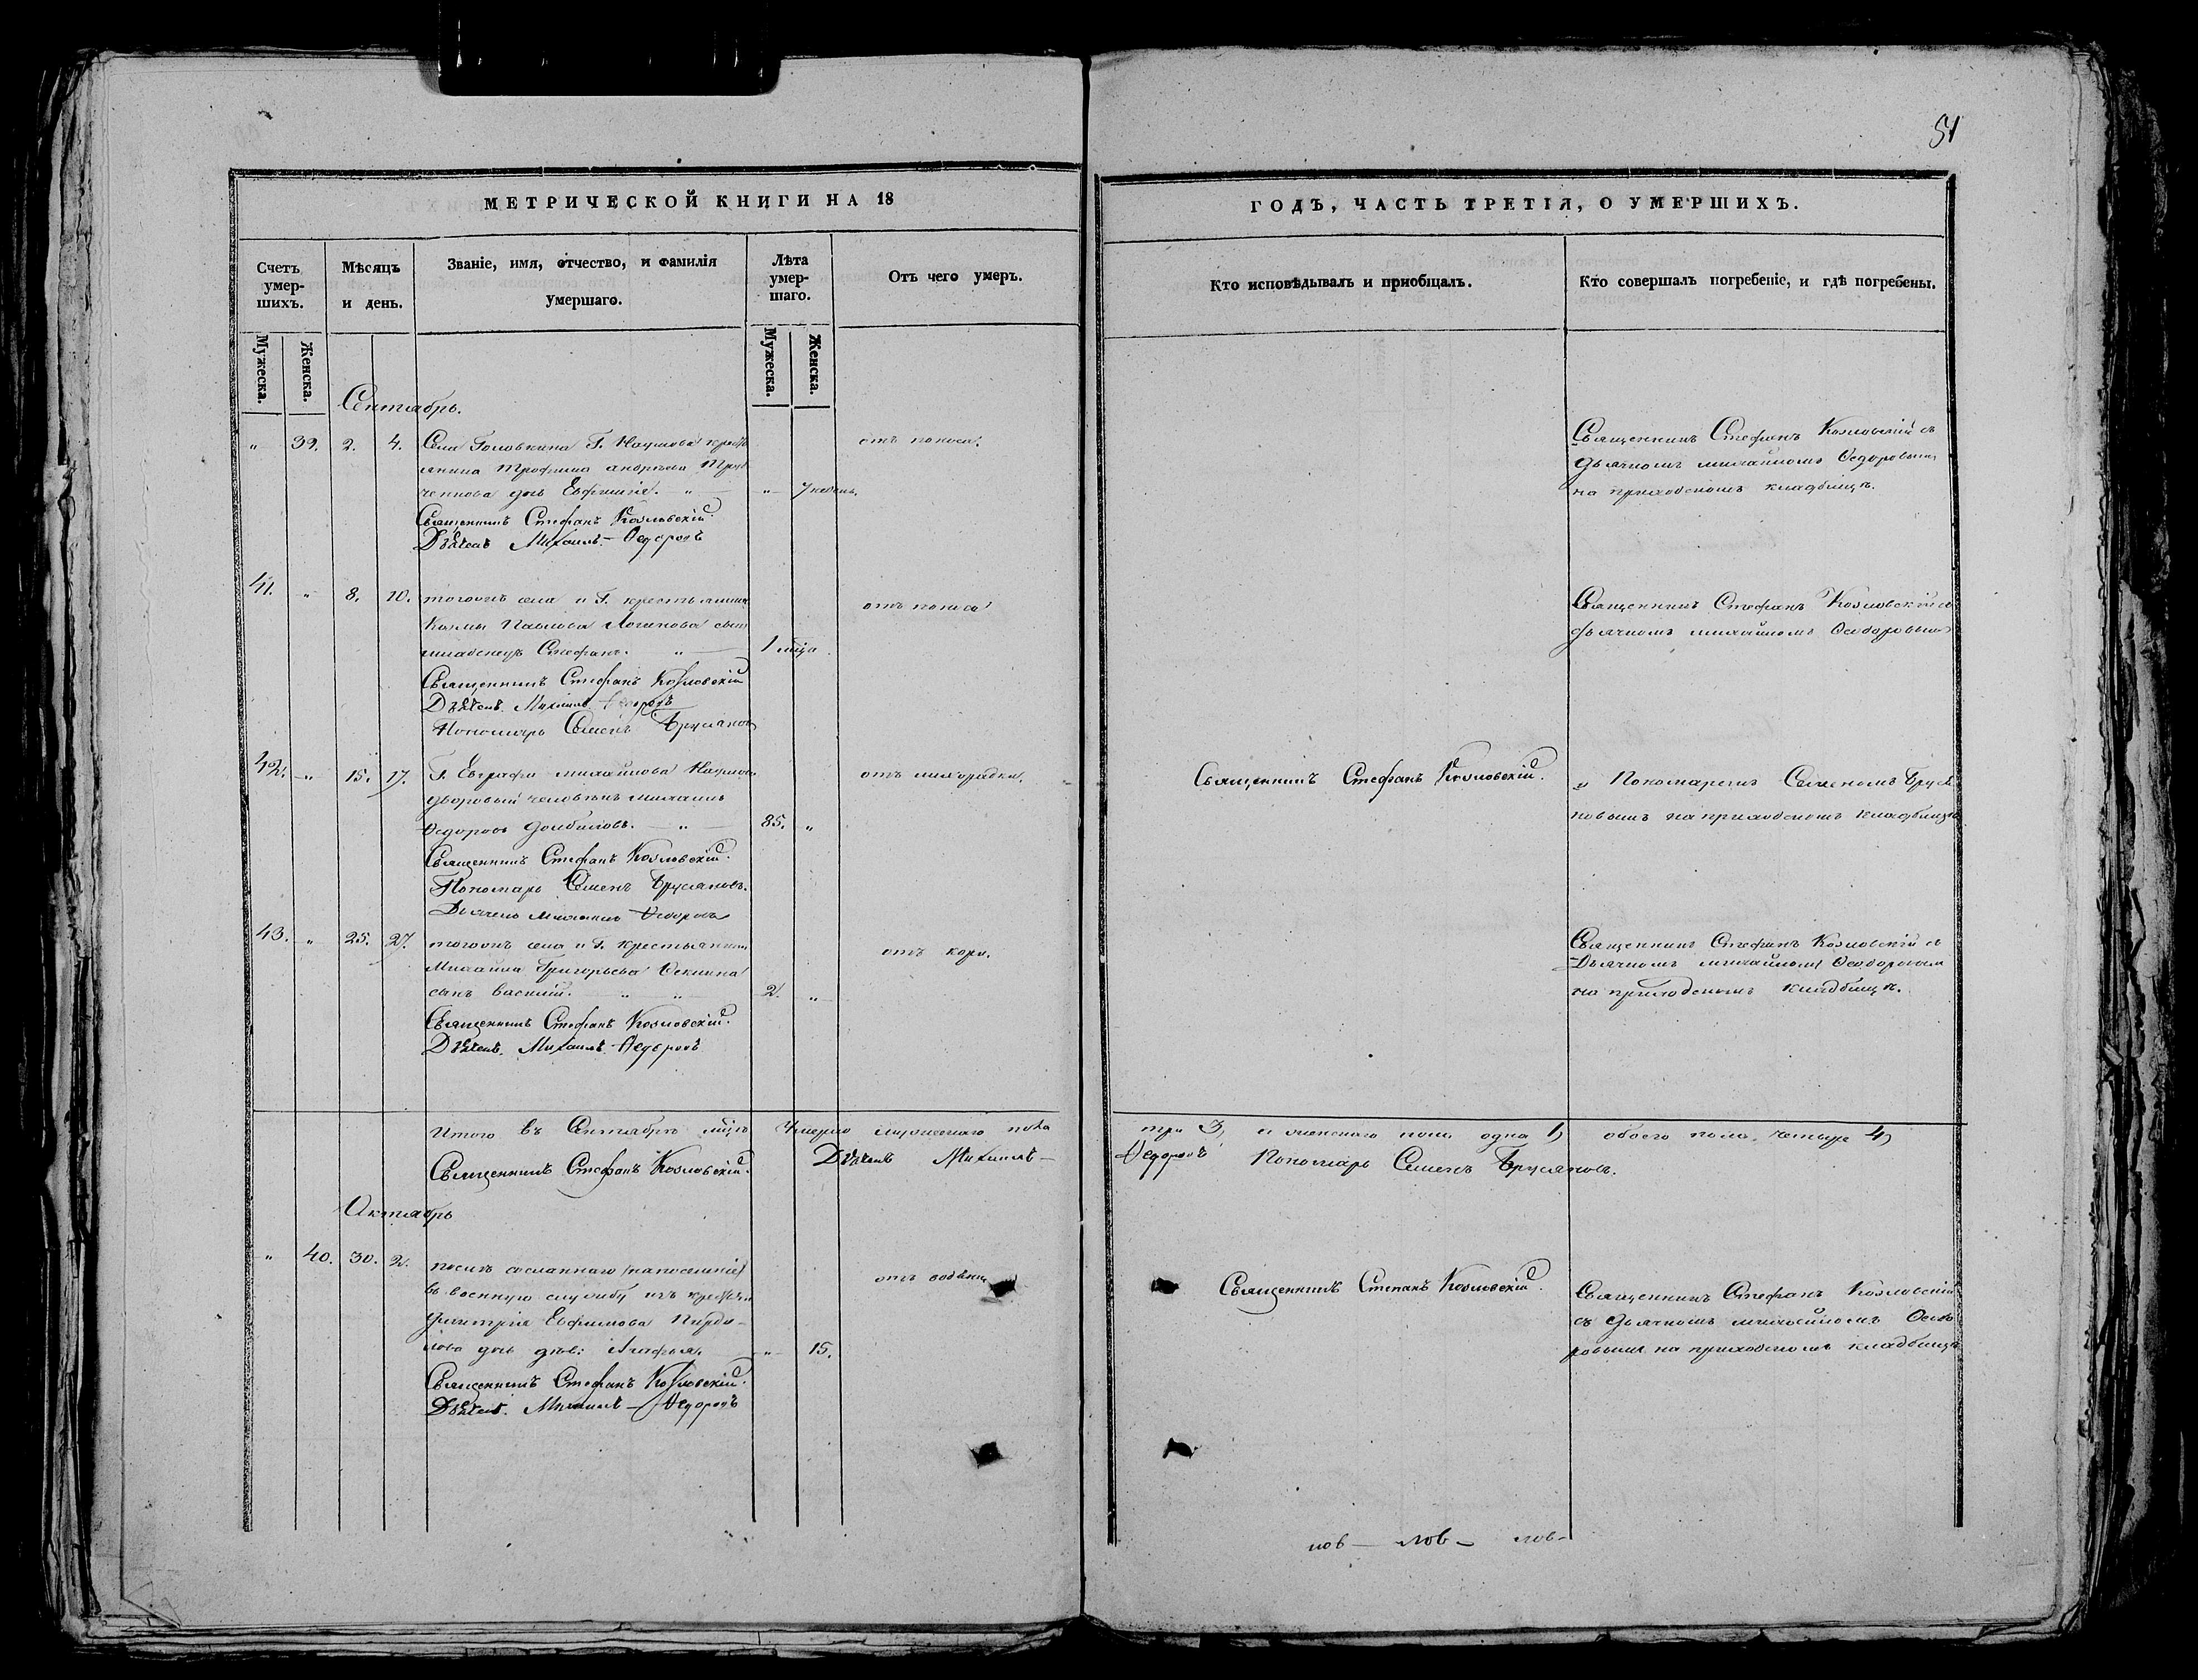 51
МЕТРИЧЕСКОЙ КНИГИ НА 18
ГОДЪ, ЧАСТЬ ТРЕТІЯ, О УМЕРШИХЪ.
Счетъ умер-шихъ.
Мѣсяцъ и день.
Званіе, имя, отчество, и фамилія умершаго.
Лѣта умер-шаго.
Отъ чего умеръ.
Кто исповѣдывалъ и пріобщалъ.
Кто совершалъ погребеніе, и гдѣ погребены.
Мужеска.
Женска.
Мужеска.
Женска.
Сентябрь.
" 39. 2. 4. Села Головкина Г. Наумова крест
янина Трофима андреева
дочь Евфимія. " — " — 7 недель.
отъ поноса.
Священникъ Стефанъ Козловскій съ
дьячкомъ михайломъ Федоровымъ
на приходскомъ кладбищѣ.
Священникъ Стефанъ Козловскій.
Дьячекъ Михаилъ — Федоровъ
41. " 8. 10. тогожъ села и Г. крестьянина
Козмы Павлова Логинова сынъ
младенецъ Стефанъ. " — 1 мѣца
отъ поноса
Священникъ Стефанъ Козловскій съ
дьячкомъ михайломъ Феодоровымъ
Священникъ Стефанъ Козловскій
Дьячекъ Михаилъ Федоровъ
Пономарь Семенъ Бруляновъ
42. " 15. 17. Г. Евграфа михайлова Наумова
дворовый человѣкъ михаилъ
Федоровъ Домбиловъ. — " — 85. "
отъ лихорадки.
Священникъ Стефанъ Козловскій.
" Пономаремъ Семеномъ Бруля
новымъ на приходскомъ кладбищѣ
Священникъ Стефанъ Козловскій.
Пономарь Семенъ Бруляновъ.
Дьячекъ михаилъ Федоровъ
43. " 25. 27. тогожъ села и Г. крестьянина
Михаила Григорьева
сынъ василій. " " 2. "
отъ кори.
Священникъ Стефанъ Козловскій съ
Дьячкомъ михайломъ Феодоровымъ
на приходскомъ кладбищѣ.
Священникъ Стефанъ Козловскій.
Дьячекъ. Михаилъ Федоровъ
Итого въ Сентябрѣ мцѣ Умерло мужескаго пола три 3, а женскаго пола одна 1) обоего пола, четыре 4)
Священникъ Стефанъ Козловскій. Дьячекъ Михаилъ — Федоровъ Пономарь Семенъ Бруляновъ.
Октябрь
" 40. 30. 2. посемъ сосланнаго (на поселеніе)
въ военную службу изъ крестьян
Дмитрія Евфимова
дочь дѣв: Агафья. " 15.
отъ водяны
Священникъ Стефанъ Козловскій.
Священникъ Стефанъ Козловскій
съ Дьячкомъ михайломъ Феодо
ровымъ на приходскомъ кладбищѣ
Священникъ Стефанъ Козловскій.
Дьячекъ. Михаилъ — Федоровъ
нов — лов — лов —